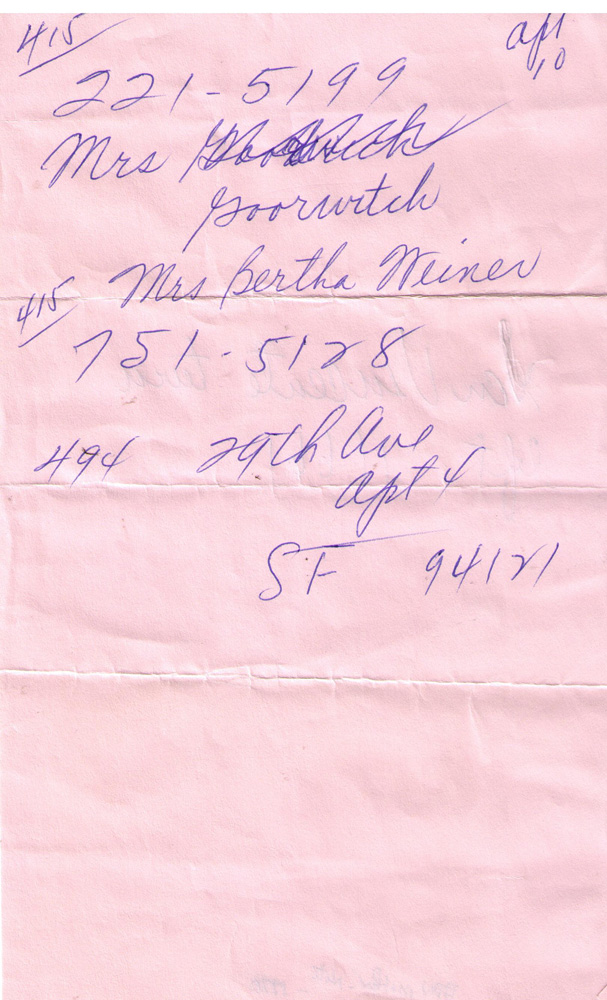 415 apt
10
221-5199
Mrs
Goorwitch
Mrs Bertha Weiner
415
751-5128
494 29th Ave
apt 4
SF 94121